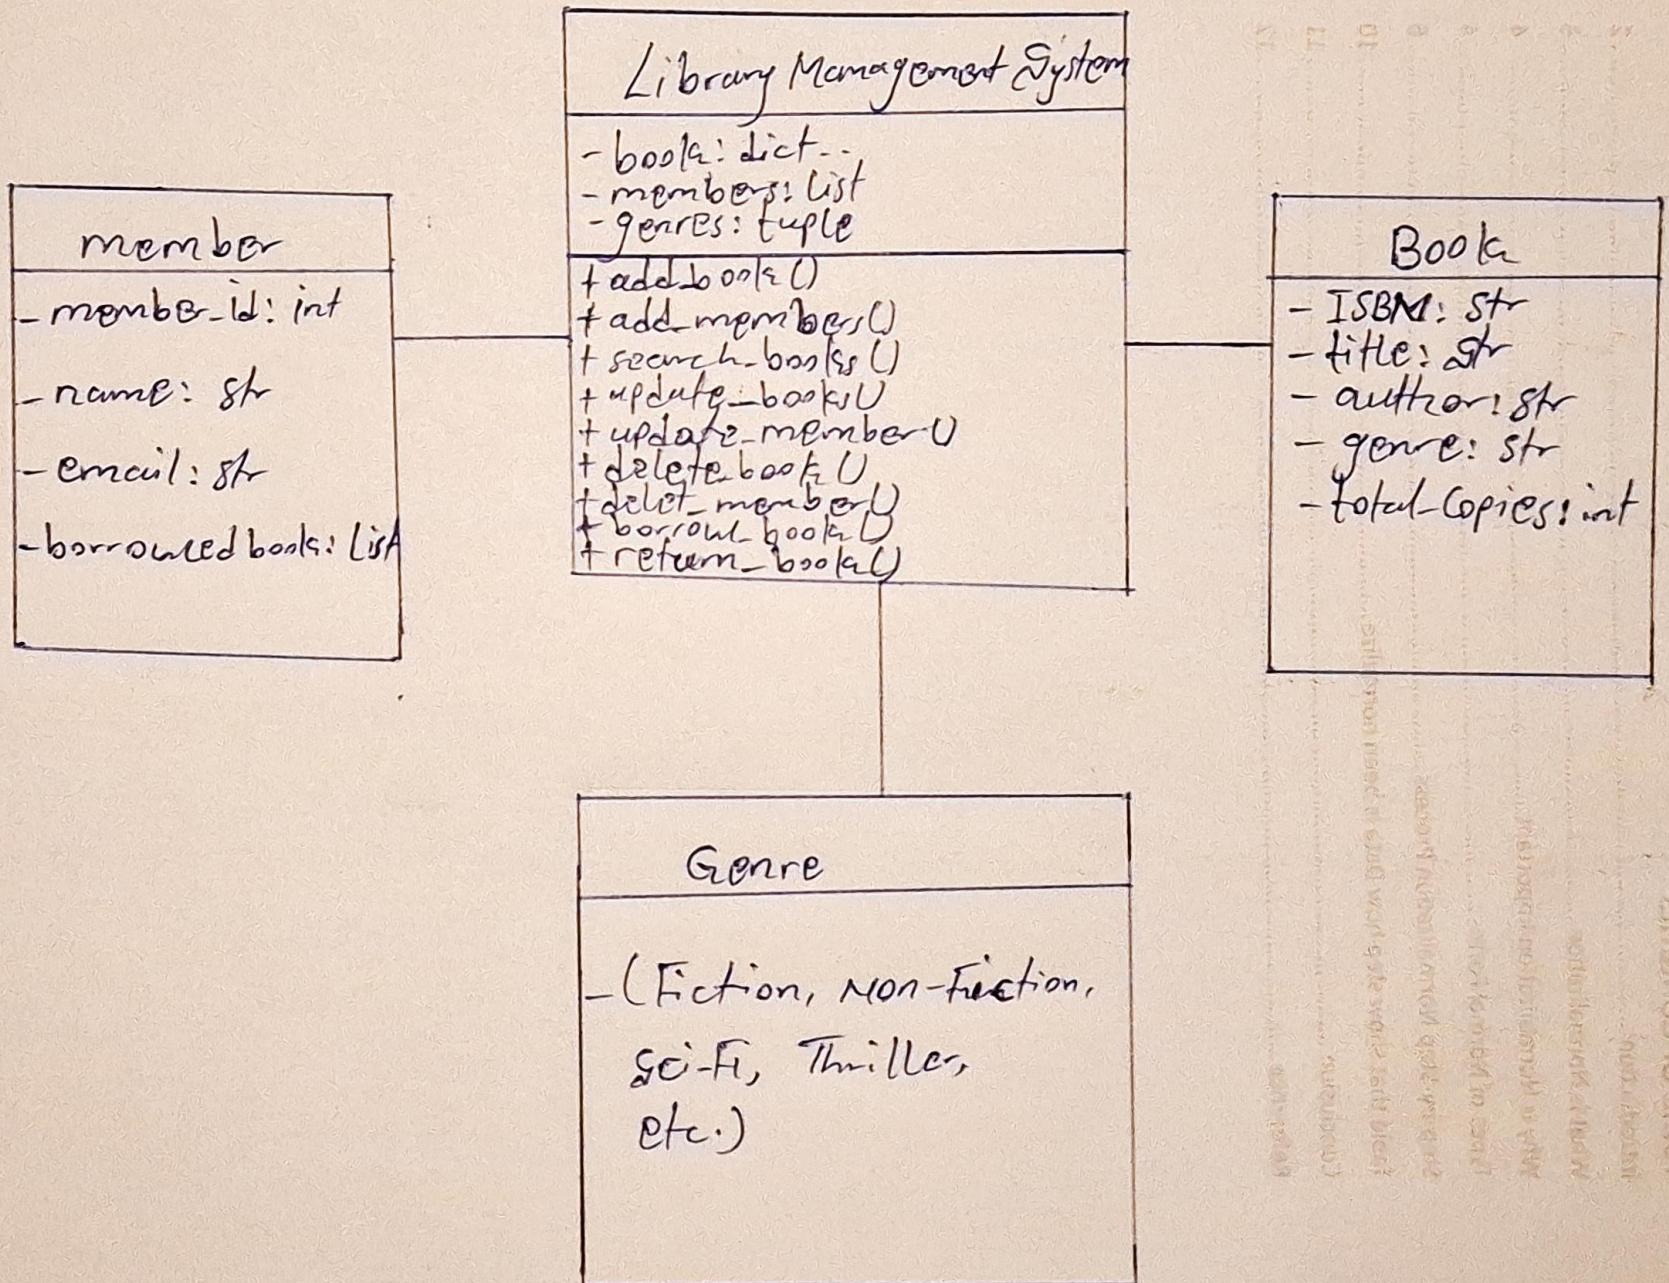 Library Management System
- book: dict..
- members: list
- genres: tuple
+ add_book()
+ add_members()
+ search_books()
+ update_books()
+ update_member()
+ delete_book()
+ delet_member()
+ borrow_book()
+ return_book()
member
- member_id: int
- name: str
- email: str
- borrowed book: List
Book
- ISBM: str
- title: str
- author: str
- genre: str
- total_copies: int
Genre
- (Fiction, Non-Fiction,
Sci-Fi, Thriller,
etc.)